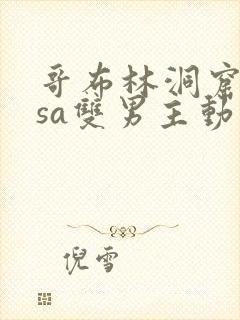 哥布林洞窟
sa雙男主動
倪雪